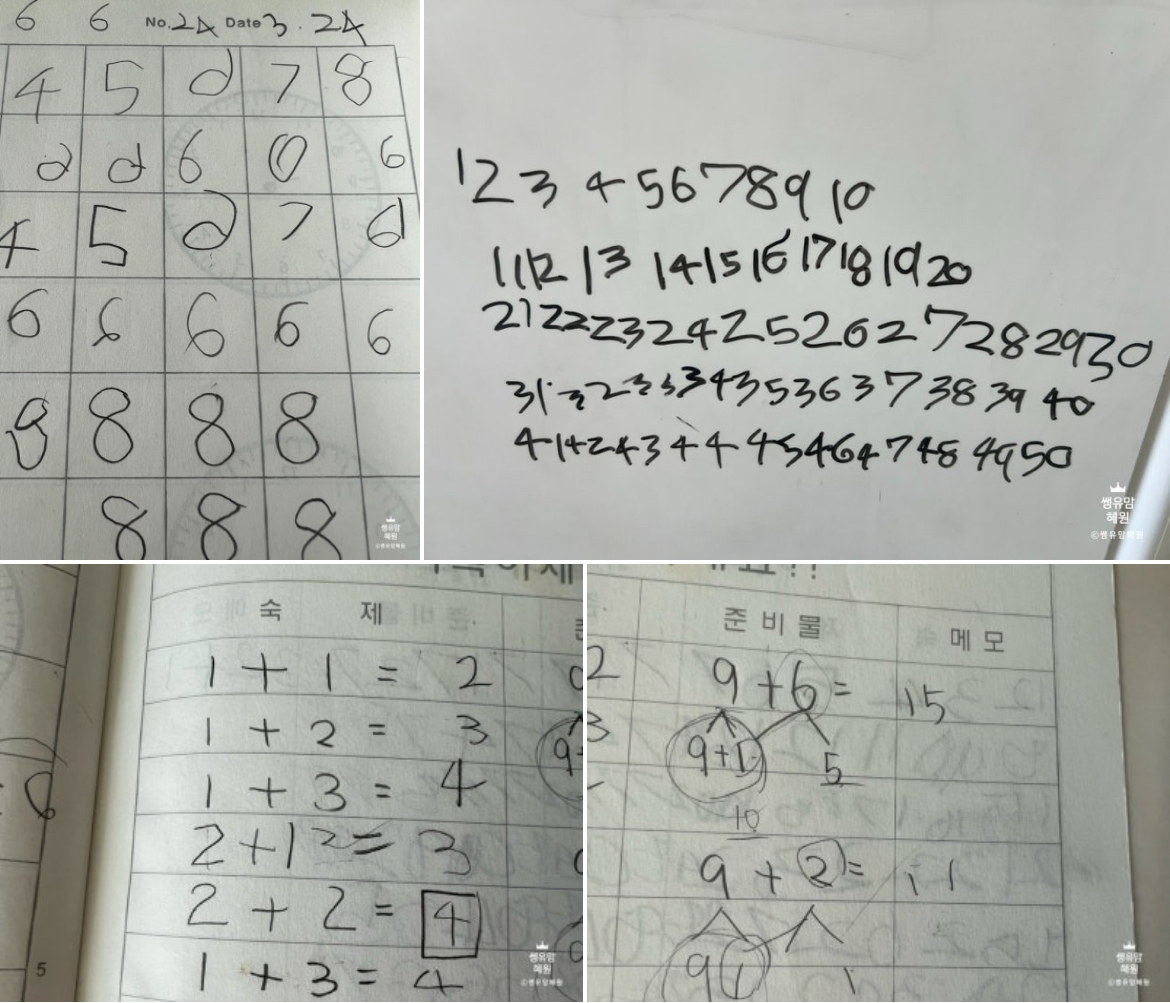 6 6 No. 24 Date 3 . 24
4 5 6 7 8
6 0 6
4 5 7
6 6 6 6 6
8 8 8 8
8 8 8
쌩유맘
혜원
©쌩유맘혜원
1 2 3 4 5 6 7 8 9 10
11 12 13 14 15 16 17 18 19 20
21 22 23 24 25 26 27 28 29 30
31 32 33 34 35 36 37 38 39 40
41 42 43 44 45 46 47 48 49 50
쌩유맘
혜원
©쌩유맘혜원
숙 제
1 + 1 = 2
1 + 2 = 3
1 + 3 = 4
2 + 1 = 3
2 + 2 = 4
1 + 3 = 4
5
쌩유맘
혜원
©쌩유맘혜원
준 비 물 메 모
9 + 6 = 15
9 + 1 5
10
9 + 2 = 11
9 1 1
쌩유맘
혜원
©쌩유맘혜원